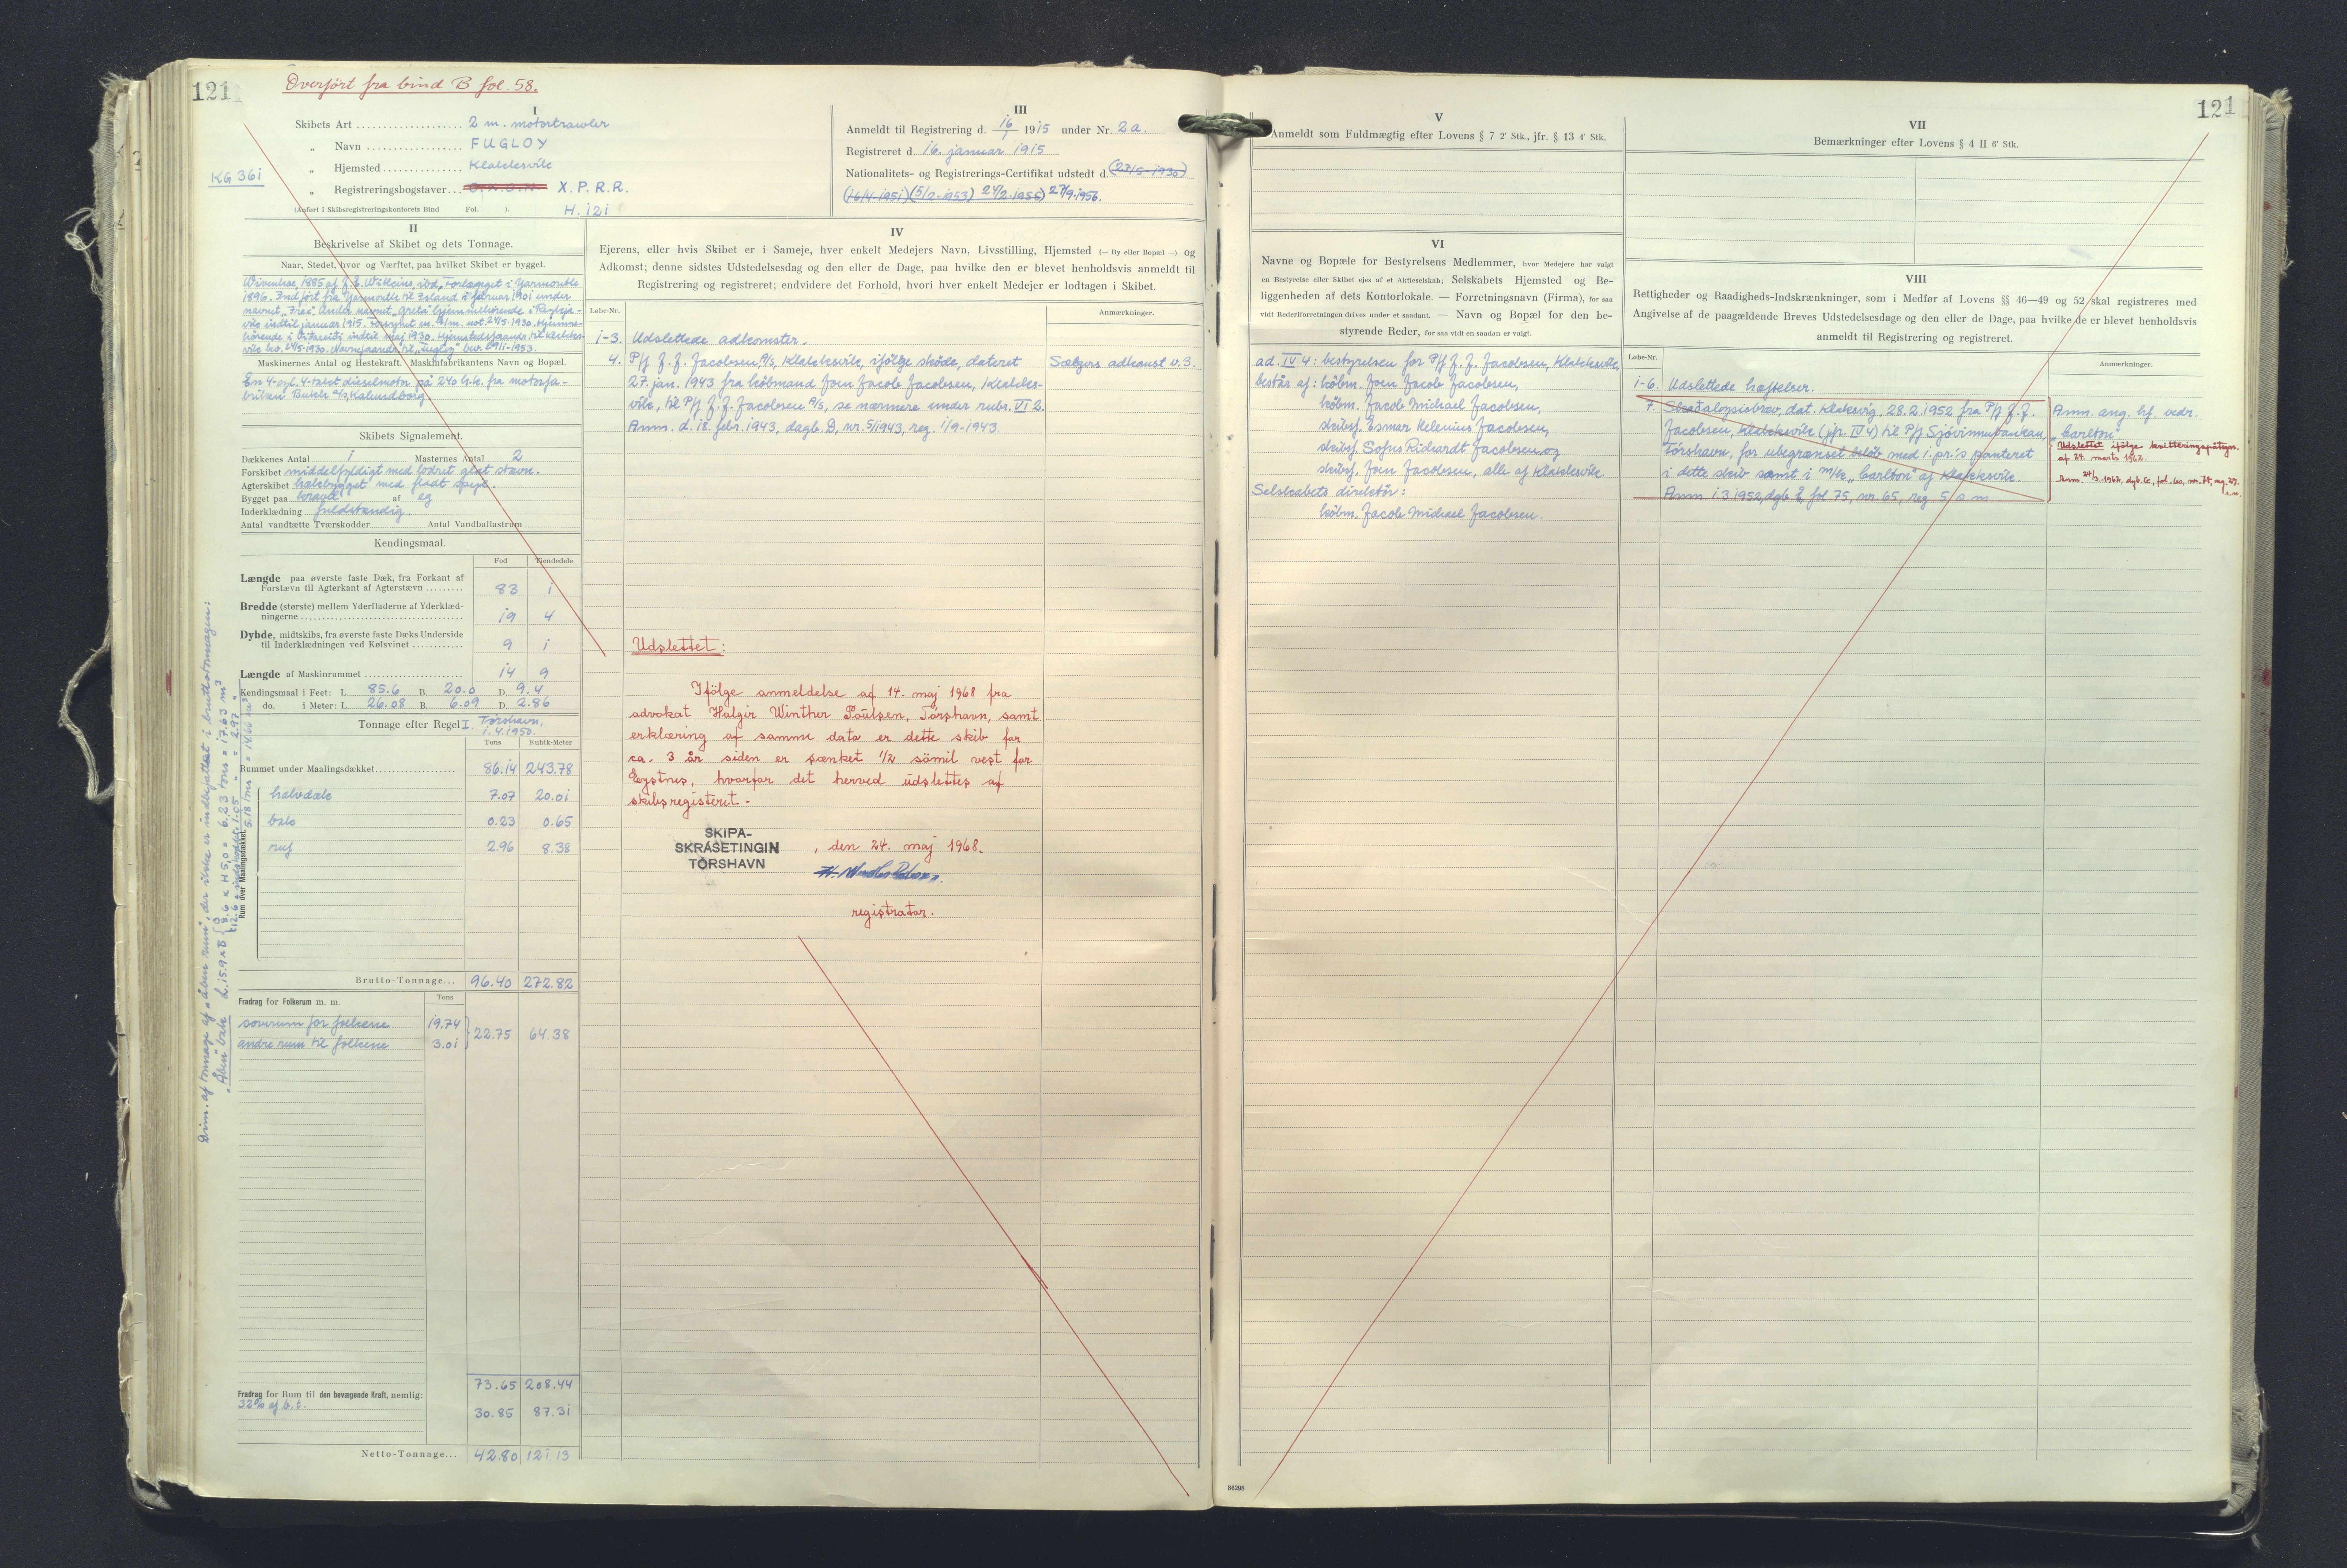 121
Overført fra bind B fol. 58.
I
Skibets Art 2 m. motortrawler
„ Navn FUGLOY
„ Hjemsted Klakksvík
KG 361
„ Registreringsbogstaver X.P.R.R.
(Anført i Skibsregistreringskontorets Bind Fol. ). H. 121
III
Anmeldt til Registrering d. 16/1 1915 under Nr. 2a.
Registreret d. 16. januar 1915
Nationalitets- og Registrerings-Certifikat udstedt d. (27/5-1930)
(16/4-1951) (5/2-1953) 24/2.1955) 27/9.1956.
II
Beskrivelse af Skibet og dets Tonnage.
Naar, Stedet, hvor og Værftet, paa hvilket Skibet er bygget.
1885 af
1896. Indført fra Yarmouth til Island i februar 1901 under
navnet
vík indtil januar 1915.
indtil maj 1930.
Maskinernes Antal og Hestekraft. Maskinfabrikantens Navn og Bopæl.
En 4-cyl. 4-takt dieselmotor på 240 h.k. fra motorfa-
briken Bukh A/S, Kalundborg
Skibets Signalement.
Dækkenes Antal 1 Masternes Antal 2
Forskibet middelfyldigt med lodret glat stævn.
Agterskibet hækbygget med fladt spejl.
Bygget paa kravel af eg
Inderklædning fuldstændig.
Antal vandtætte Tværskodder Antal Vandballastrum
Kendingsmaal.
Fod Tiendedele
Længde paa øverste faste Dæk, fra Forkant af
Forstævn til Agterkant af Agterstævn 83 1
Bredde (største) mellem Yderfladerne af Yderklæd-
ningerne 19 4
Dybde, midtskibs, fra øverste faste Dæks Underside
til Inderklædningen ved Kølsvinet 9 1
Længde af Maskinrummet 14 9
Kendingsmaal i Feet: L. 85.6 B. 20.0 D. 9.4
do. i Meter: L. 26.08 B. 6.09 D. 2.86
Tonnage efter Regel I. Tórshavn,
1.4.1950.
Tons Kubik-Meter
Rummet under Maalingsdækket 86.14 243.78
halvdæk 7.07 20.01
bak 0.23 0.65
ruf 2.96 8.38
Rum over Maalingsdækket.
Dim. af tonnage af „åben rum", der ikke er indbefattet i bruttotonnagen:
„Åben" bak
Brutto-Tonnage... 96.40 272.82
Fradrag for Folkerum m. m. Tons
soverum for folkene 19.74
22.75 64.38
andre rum til folkene 3.01
73.65 208.44
Fradrag for Rum til den bevægende Kraft, nemlig:
32% af b.t. 30.85 87.31
Netto-Tonnage... 42.80 121.13
IV
Ejerens, eller hvis Skibet er i Sameje, hver enkelt Medejers Navn, Livsstilling, Hjemsted (— By eller Bopæl —) og
Adkomst; denne sidstes Udstedelsesdag og den eller de Dage, paa hvilke den er blevet henholdsvis anmeldt til
Registrering og registreret; endvidere det Forhold, hvori hver enkelt Medejer er lodtagen i Skibet.
Løbe-Nr. Anmærkninger.
1-3. Udslettede adkomster.
4. P/f J. J. Jacobsen A/S, Klakksvík, ifølge skøde, dateret Sælgers adkomst v. 3.
27. jan. 1943 fra købmand Joen Jacob Jacobsen, Klakks-
vík, til P/f J. J. Jacobsen A/S, se nærmere under rubr. VI 2.
Anm. d. 18. febr. 1943, dagb. D, nr. 5/1943, reg. 1/9-1943
Udslettet:
Ifölge anmeldelse af 14. maj 1968 fra
advokat Halgir Winther Poulsen, Tórshavn, samt
erklæring af samme dato er dette skib for
ca. 3 år siden er sænket 1/2 sömil vest for
Eystnes, hvorfor det herved udslettes af
skibsregistret.
SKIPA-
SKRÁSETINGIN
TÓRSHAVN
, den 24. maj 1968.
registrator.
121
V
Anmeldt som Fuldmægtig efter Lovens § 7 2' Stk., jfr. § 13 4' Stk.
VI
Navne og Bopæle for Bestyrelsens Medlemmer, hvor Medejere har valgt
en Bestyrelse eller Skibet ejes af et Aktieselskab; Selskabets Hjemsted og Be-
liggenheden af dets Kontorlokale. — Forretningsnavn (Firma), for saa
vidt Bederiforretningen drives under et saadant. — Navn og Bopæl for den be-
styrende Reder, for saa vidt en saadan er valgt.
ad. IV 4: bestyrelsen for P/f J. J. Jacobsen, Klakksvík,
består af: købm. Joen Jacob Jacobsen,
købm. Jacob Michael Jacobsen,
skibsf. Esmar Kelenius Jacobsen,
skibsf. Sofus Richardt Jacobsen, og
skibsf. Joen Jacobsen, alle af Klakksvík
Selskabets direktør:
købm. Jacob Michael Jacobsen.
VII
Bemærkninger efter Lovens § 4 II 6' Stk.
VIII
Rettigheder og Raadigheds-Indskrænkninger, som i Medfør af Lovens §§ 46—49 og 52 skal registreres med
Angivelse af de paagældende Breves Udstedelsesdag og den eller de Dage, paa hvilke de er blevet henholdsvis
anmeldt til Registrering og registreret.
Løbe-Nr. Anmærkninger.
1-6. Udslettede hæftelser.
7. Skadesløsbrev, dat. Klaksvíg, 28.2.1952 fra P/f J. J.
Jacobsen, Klakksvík (jfr. IV 4) til P/f Sjóvinnubankan,
Tórshavn, for ubegrænset beløb med 1. pr.'s panteret
i dette skib samt i m/k „Carlton" af Klakksvík.
Anm. 1.3.1952, dgb. E, fol. 75, nr. 65, reg. 5/s.m.
Anm. ang. hf. vedr.
„Carlton"
Udslettet ifølge kvitteringspåtegn.
af 24. marts 1962.
86298